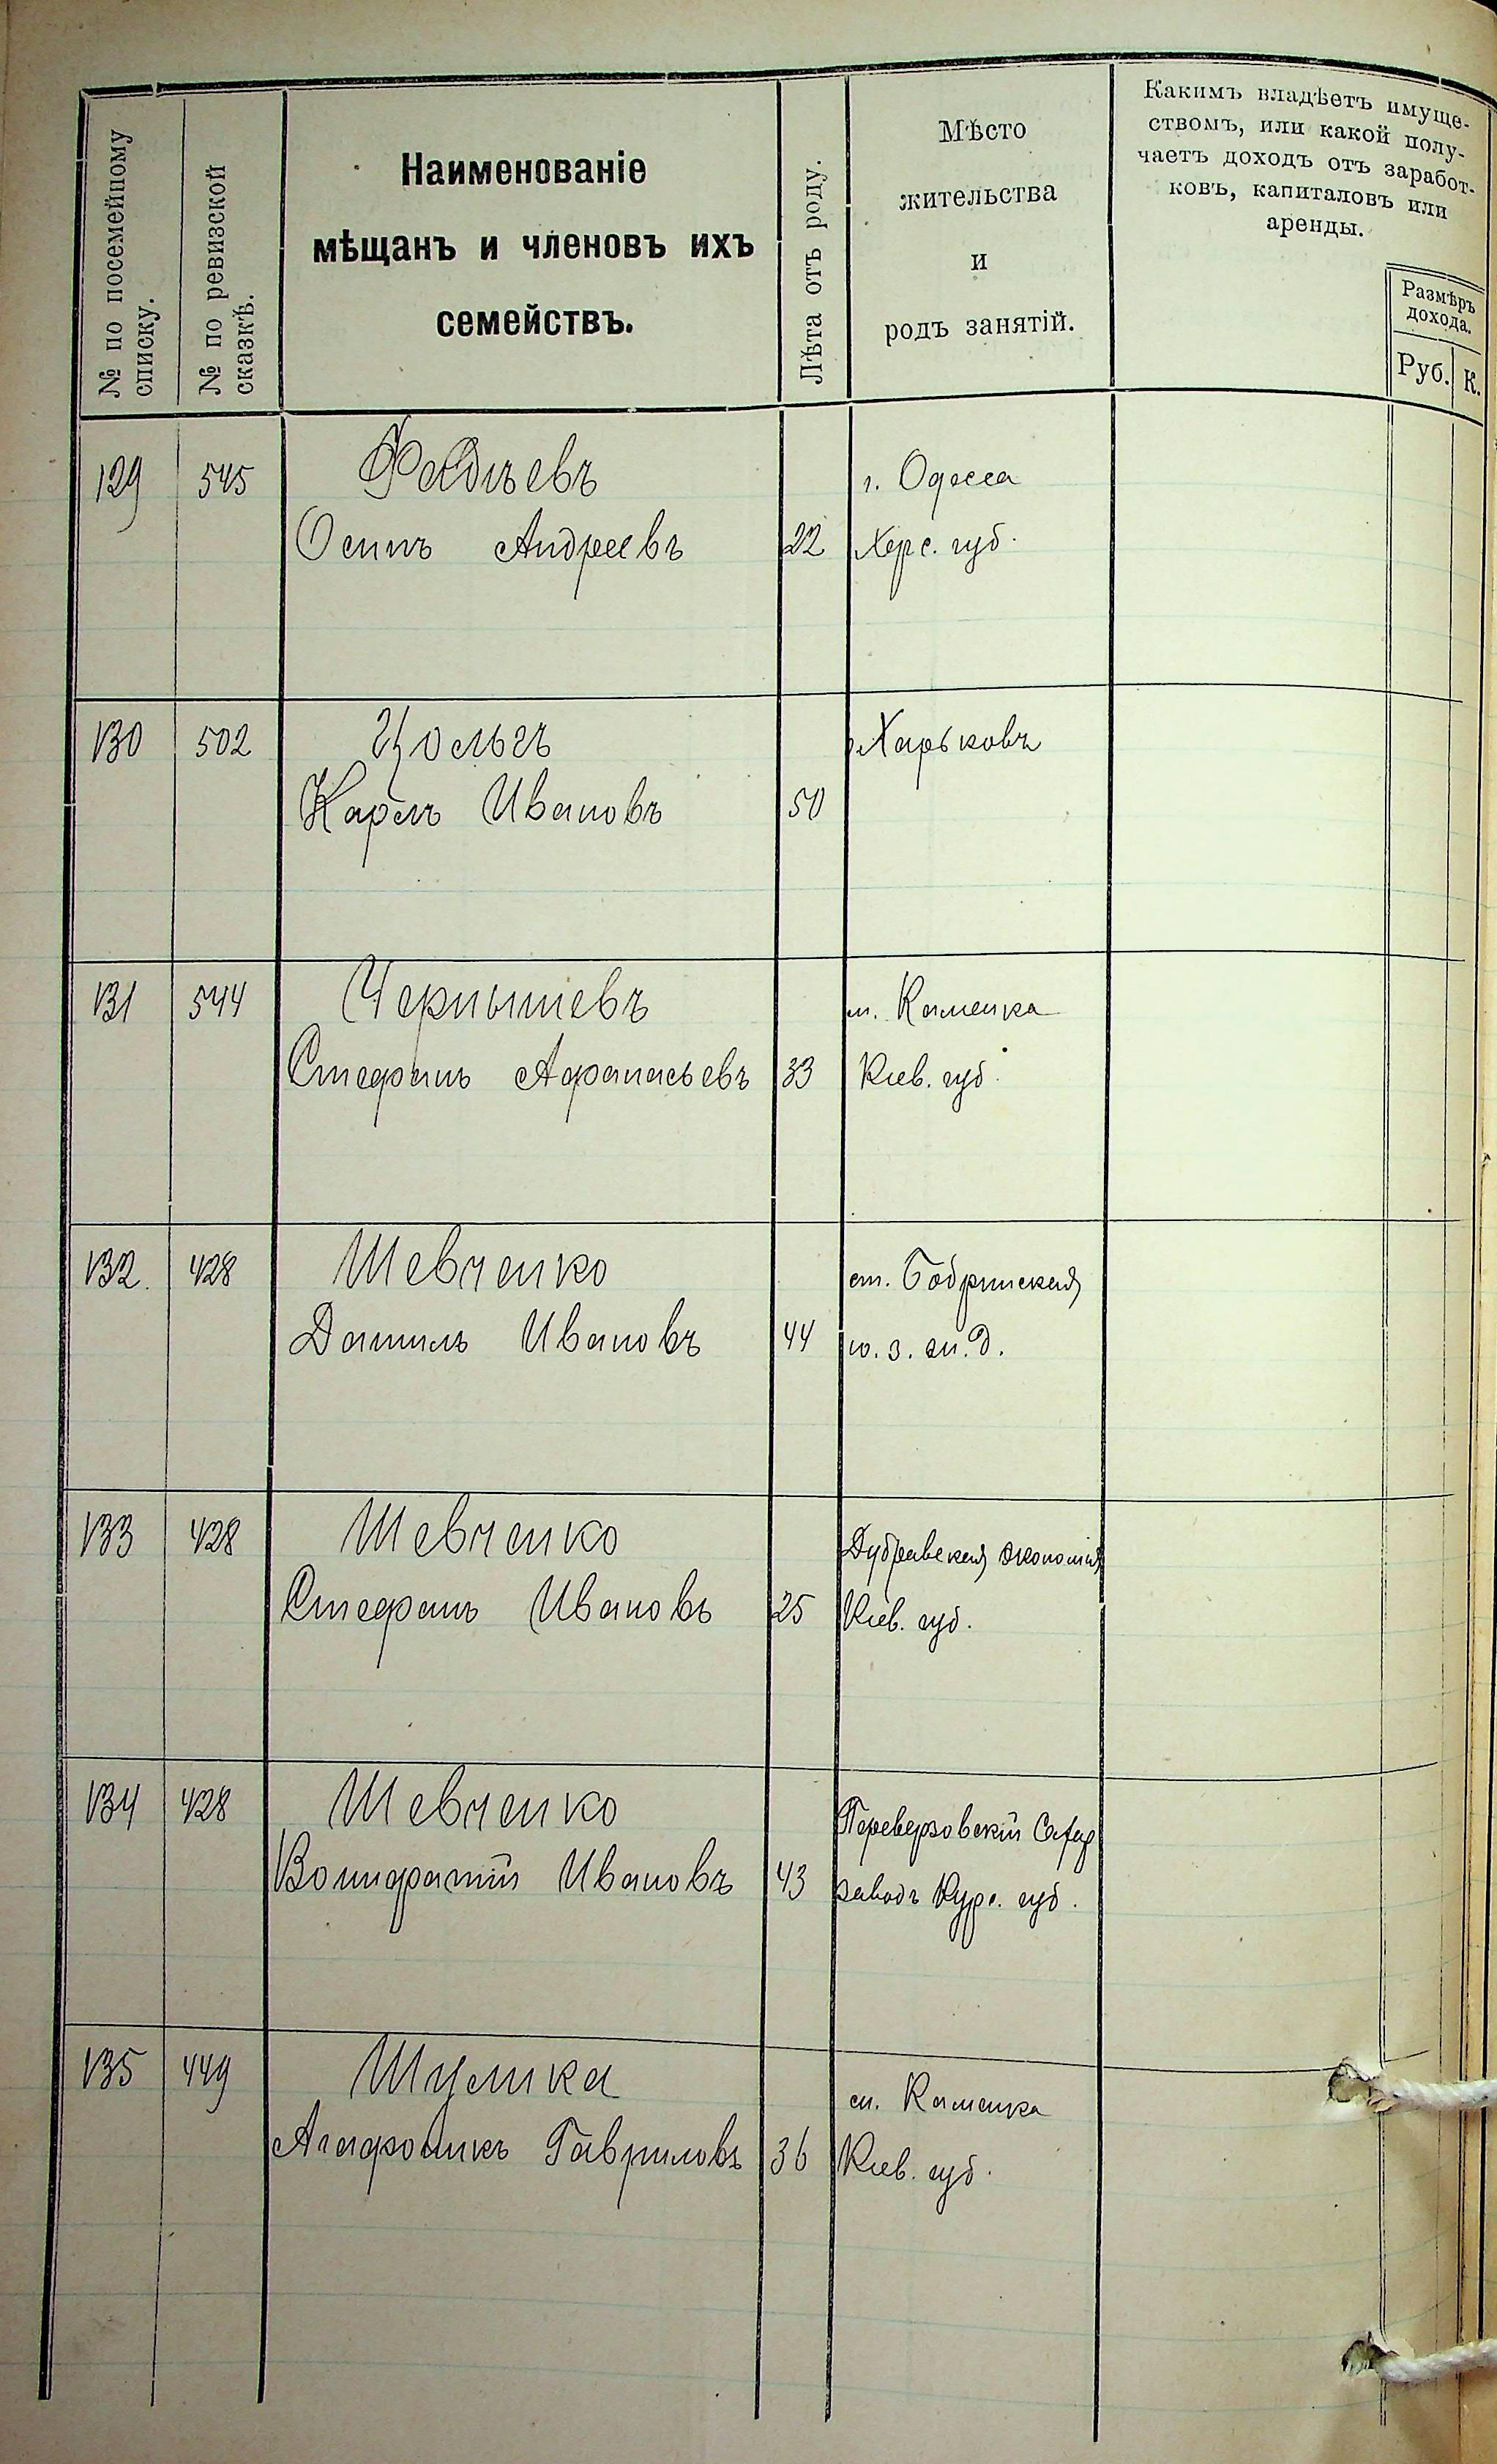 № по посемейному
списку.
№ по ревизской
сказкѣ.
Наименованіе
мѣщанъ и членовъ ихъ
семействъ.
Лѣта отъ роду.
Мѣсто
жительства
и
родъ занятій.
Какимъ владѣетъ имуще-
ствомъ, или какой полу-
чаетъ доходъ отъ заработ-
ковъ, капиталовъ или
аренды.
Размѣръ
дохода.
Руб. К.
129 545 Фадѣевъ г. Одесса
Осипъ Андреевъ 22 Херс. губ.
130 502 Цольгъ г. Харьковъ
Карлъ Ивановъ 50
131 544 Чернышевъ м. Каменка
Стефанъ Афанасьевъ 33 Кіев. губ.
132. 428 Шевченко ст. Бобринская
Данилъ Ивановъ 44 ю. з. ж. д.
133 428 Шевченко Дубравская экономія
Стефанъ Ивановъ 25 Кіев. губ.
134 428 Шевченко Переверзовскій Сахар
Вонифатій Ивановъ 43 заводъ Курс. губ.
135 449 Шулика м. Каменка
Агафоникъ Гавриловъ 36 Кіев. губ.